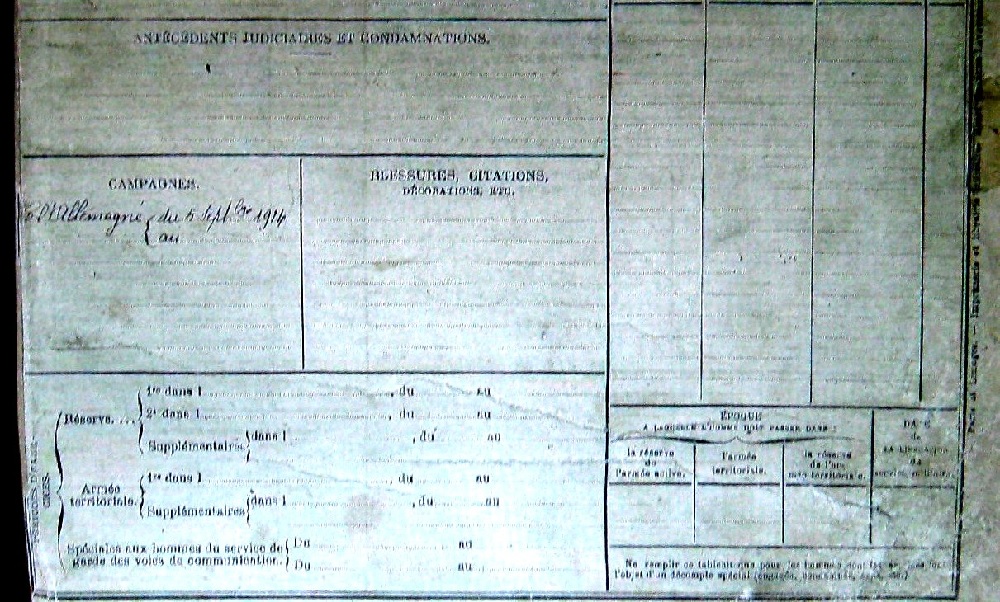 ANTÉCÉDENTS JUDICIAIRES ET CONDAMNATIONS.
CAMPAGNES.
BLESSURES, CITATIONS,
DÉCORATIONS, ETC.
Allemagne { du 5 Sept.bre 1914
au
Réserve.... { 1re dans l , du au
2e dans l , du au
Supplémentaires { dans l , du au
Armée
territoriale. { 1re dans l , du au
Supplémentaires { dans l , du au
Spéciales aux hommes du service de
garde des voies de communication. { Du au
Du au
ÉPOQUE
A LAQUELLE L'HOMME DOIT PASSER DANS :
la réserve
de
l'armée active.
l'armée
territoriale.
la réserve
de l'ar-
mée territoriale.
DATE
de
LA LIBÉRATION
du
service militaire.
Ne remplir ce tableau que pour les hommes
l'objet d'un décompte spécial
Paris et Limoges. — Imprimerie et librairie